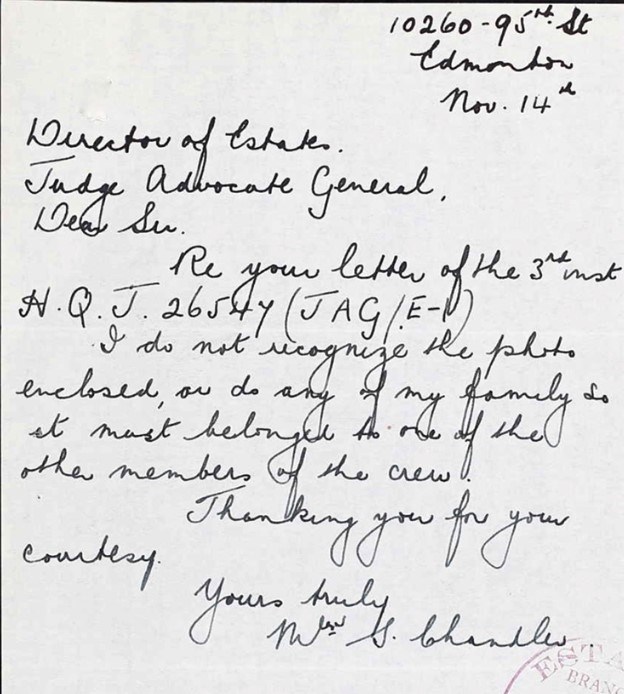 10260-95th St
Edmonton
Nov. 14th
Director of Estates.
Judge Advocate General,
Dear Sir.
Re your letter of the 3rd inst
H.Q.J. 26547 (JAG/E-1)
I do not recognize the photo
enclosed, or do any of my family so
it must belonged to one of the
other members of the crew.
Thanking you for your
courtesy.
Yours truly
Mrs S. Chandler
ESTA
BRANC